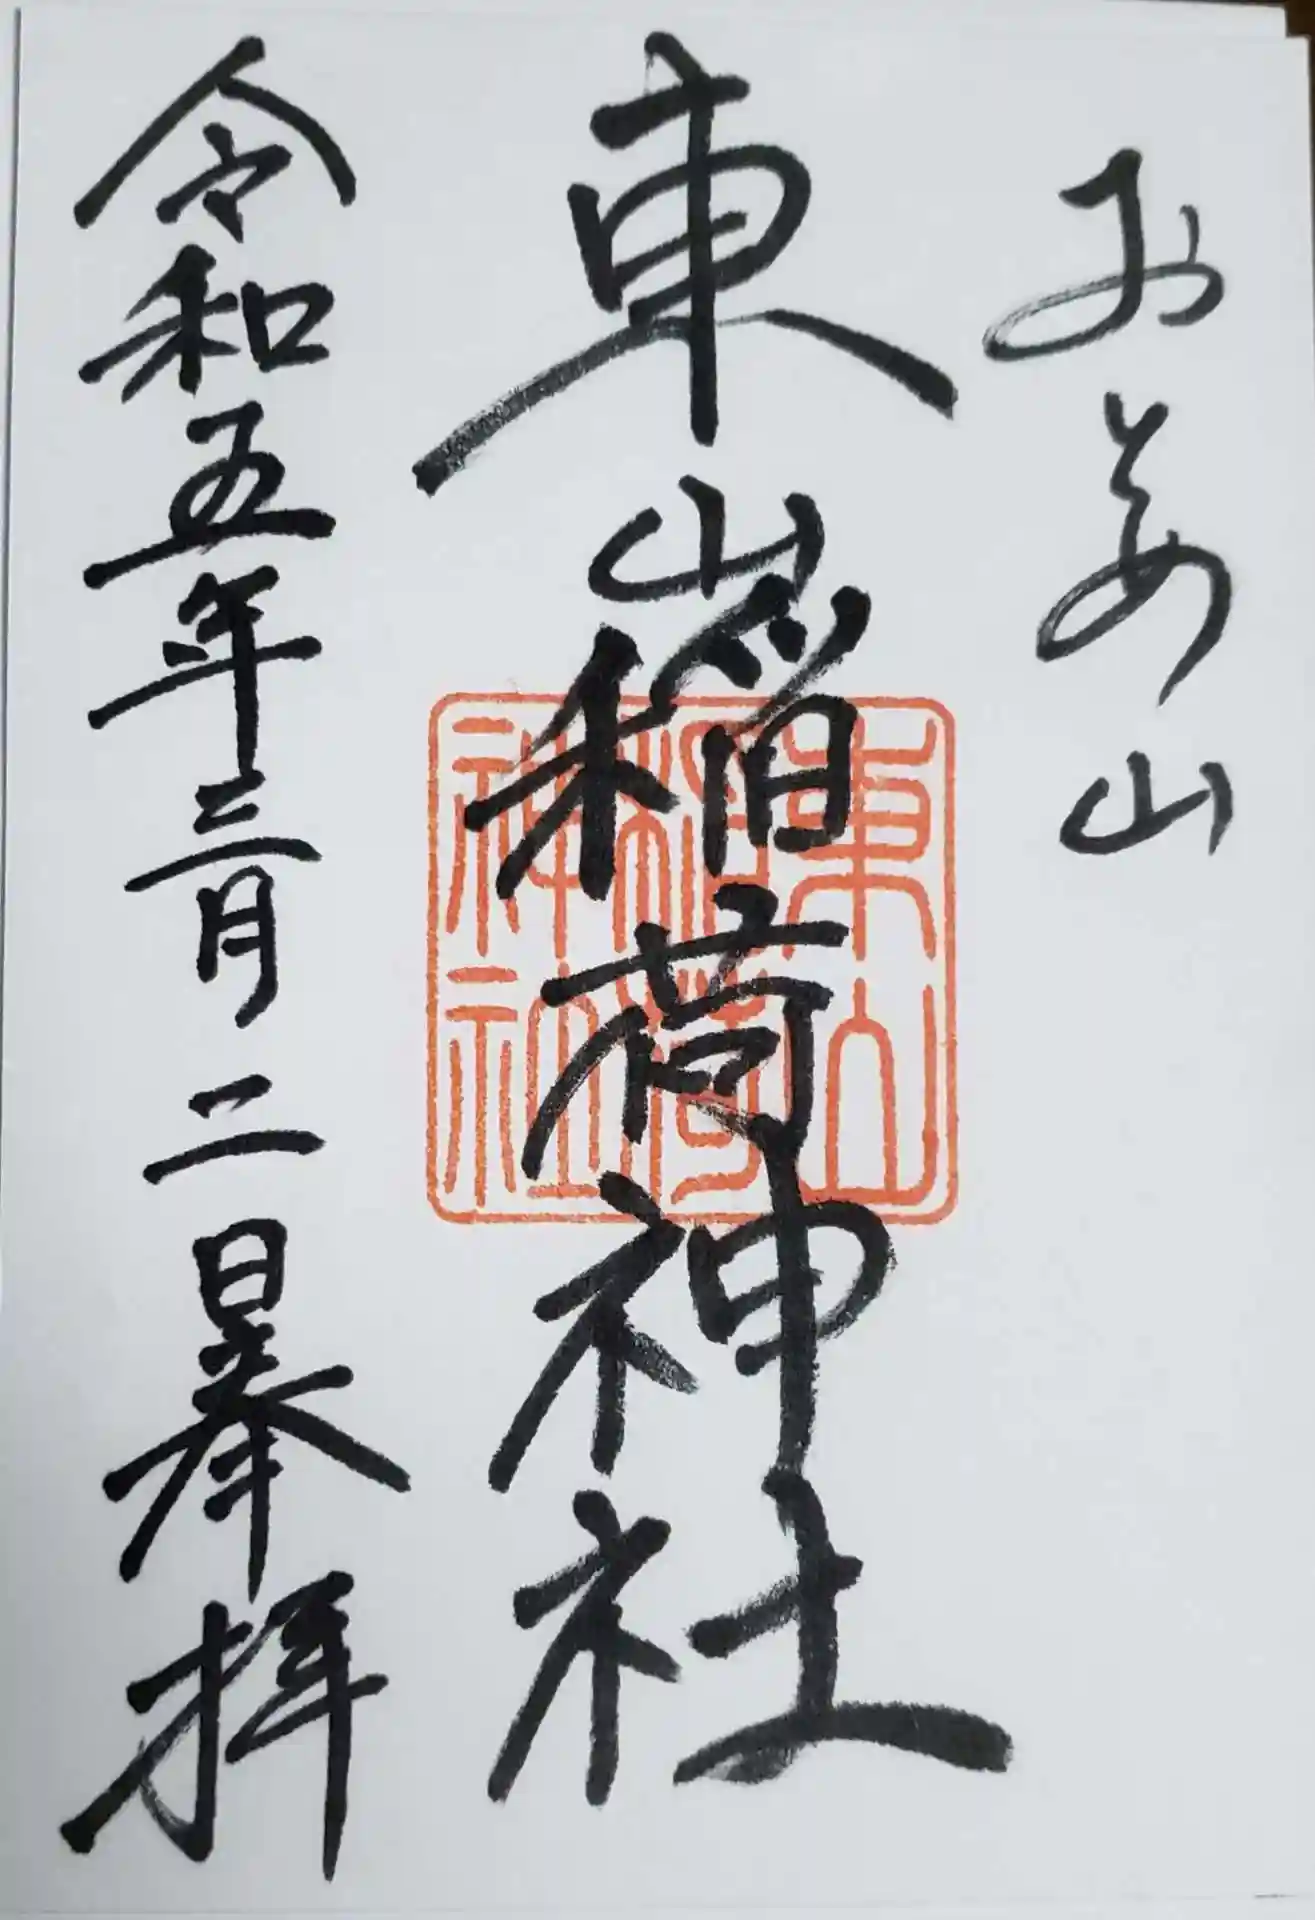 おとめ山
東山稲荷神社
東山
稲荷
神社
令和五年三月二日奉拝